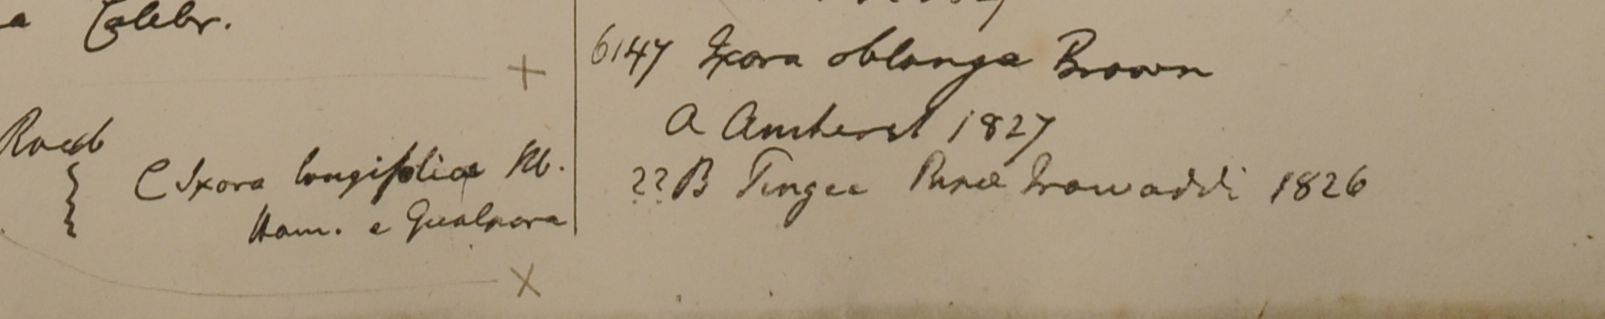 a Colebr.
Roxb
C Ixora longifolia Hb.
Ham. e Gualpara
6147 Ixora oblonga Brown
A Amherst 1827
??B Irawaddi 1826